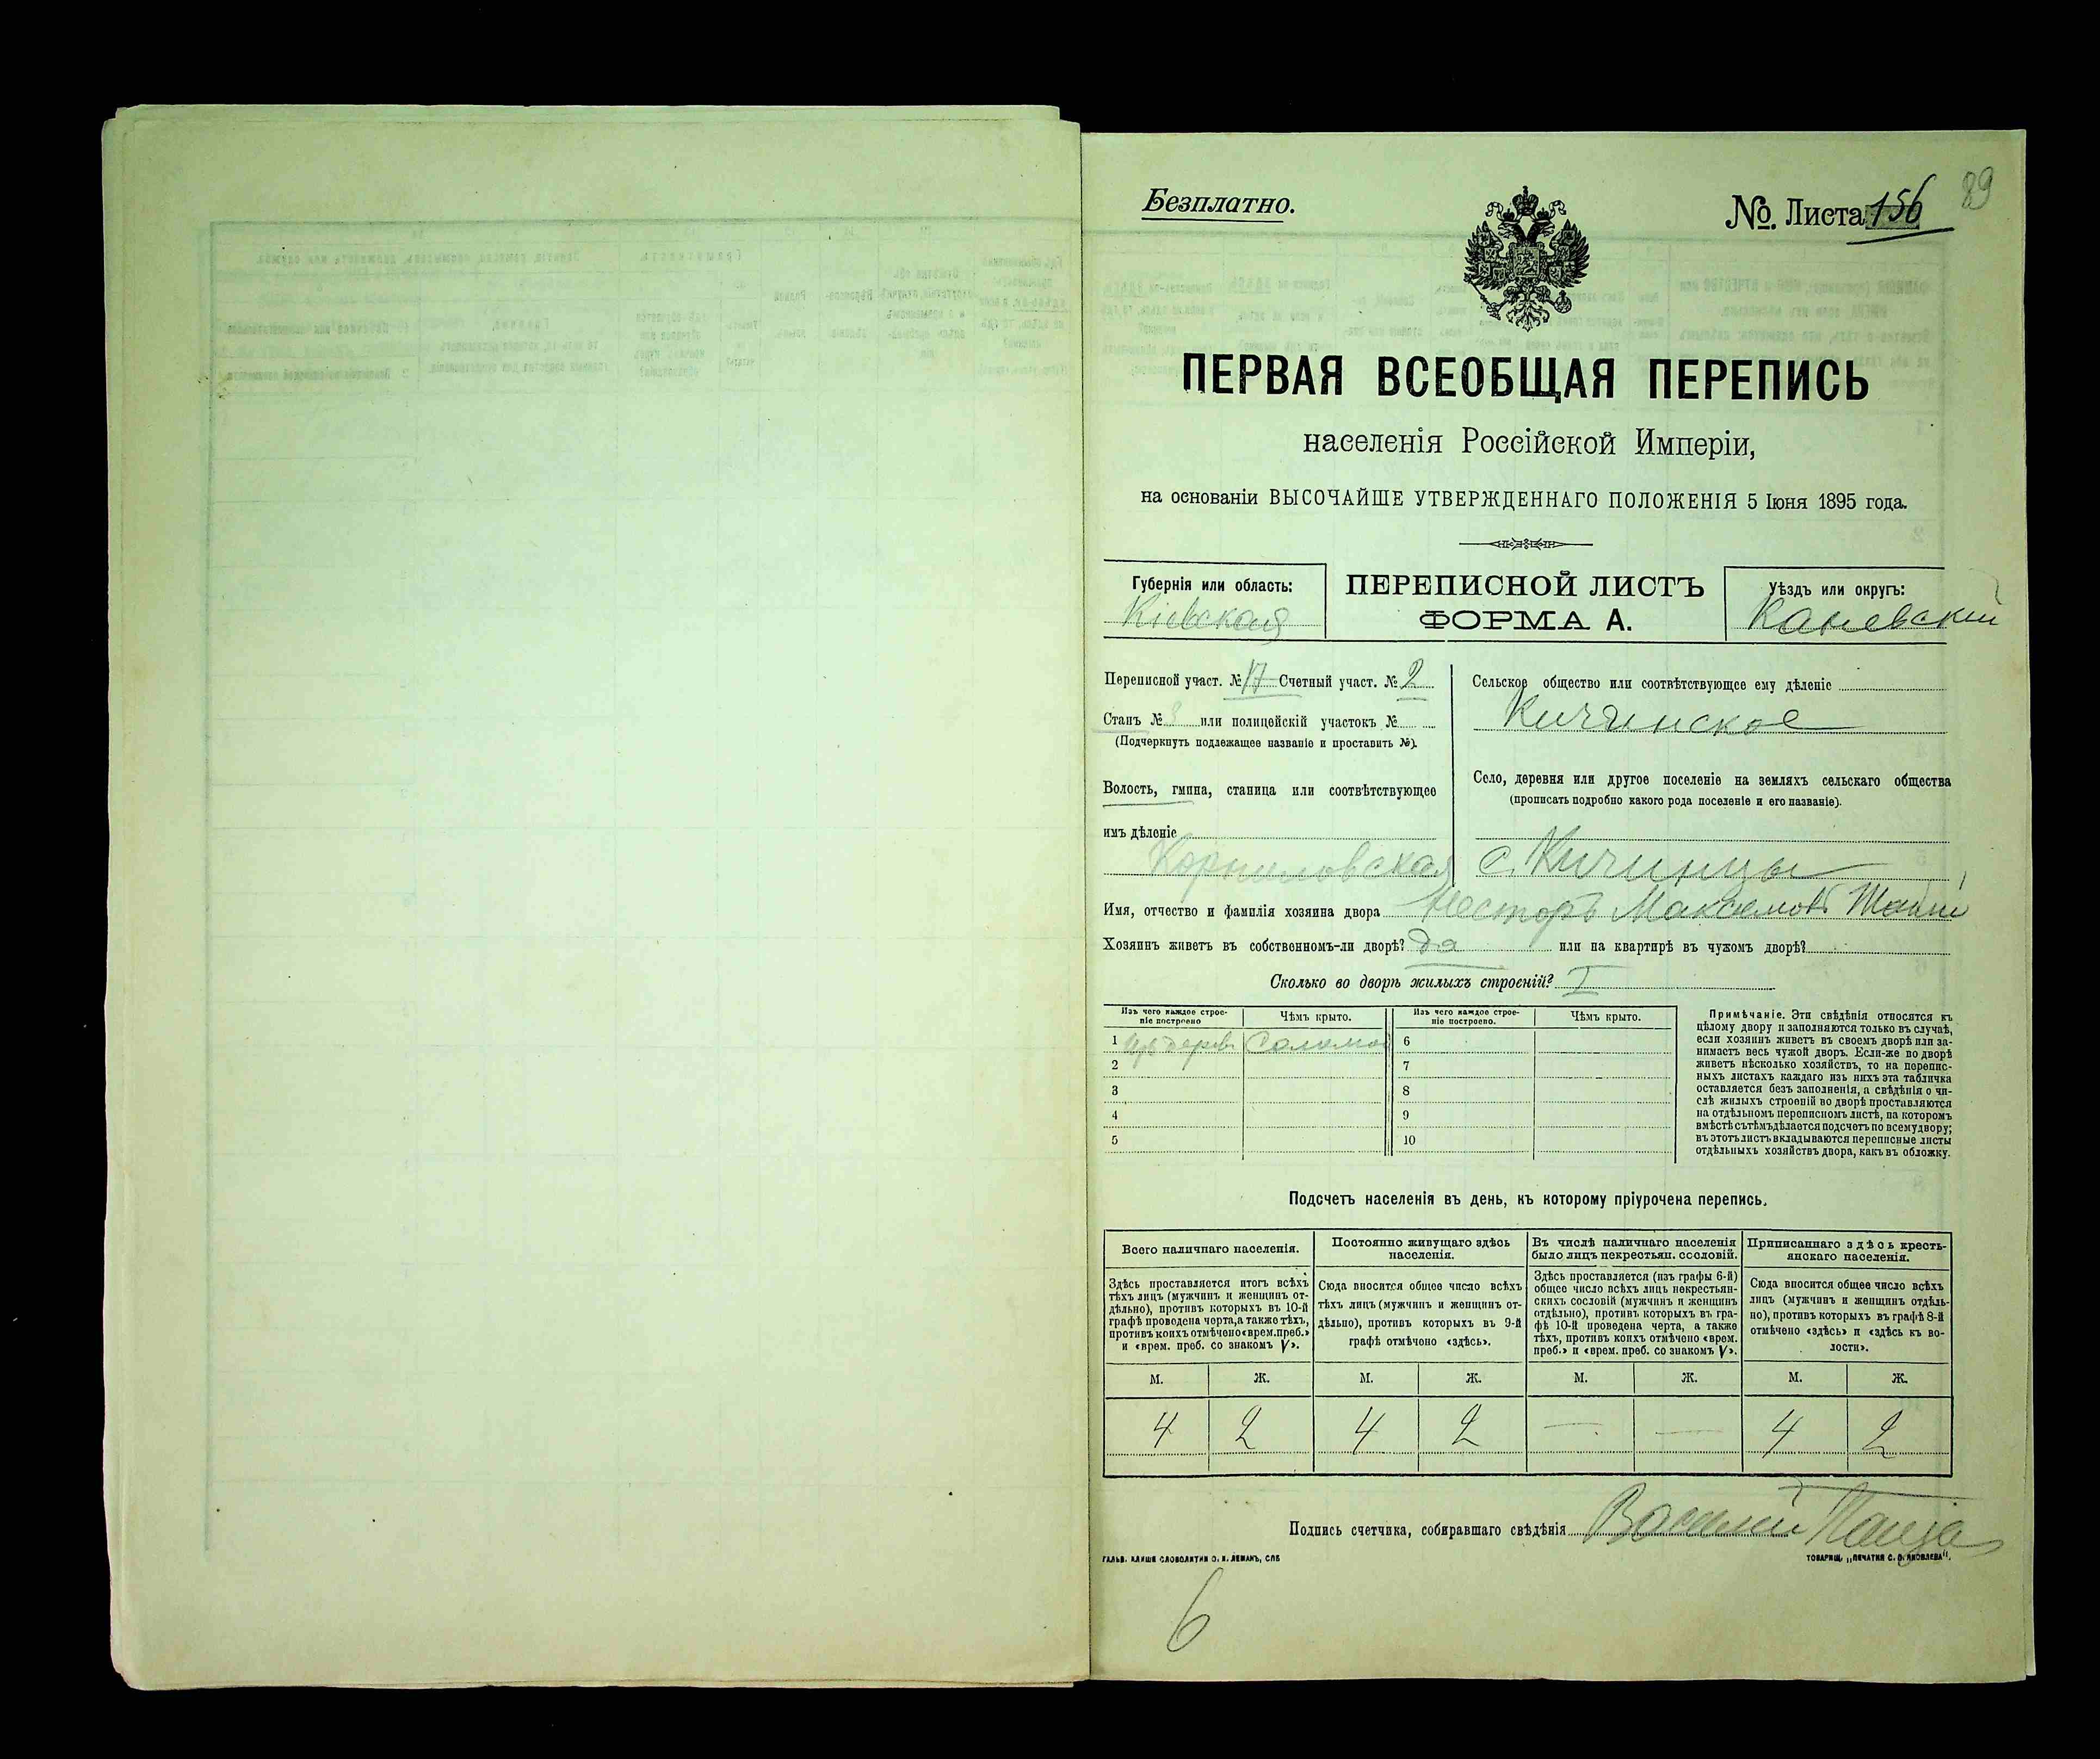 Безплатно.
№ Листа 156
89
ПЕРВАЯ ВСЕОБЩАЯ ПЕРЕПИСЬ
населенія Россійской Имперіи,
на основаніи ВЫСОЧАЙШЕ УТВЕРЖДЕННАГО ПОЛОЖЕНІЯ 5 Іюня 1895 года.
Губернія или область:
Кіевская
ПЕРЕПИСНОЙ ЛИСТЪ
ФОРМА А.
Уѣздъ или округъ:
Каневскій
Переписной участ. № 17 Счетный участ. № 2
Станъ № или полицейскій участокъ №
(Подчеркнуть подлежащее названіе и проставить №).
Волость, гмина, станица или соотвѣтствующее
имъ дѣленіе
Корниловская
Сельское общество или соотвѣтствующее ему дѣленіе
Кичинское
Село, деревня или другое поселеніе на земляхъ сельскаго общества
(прописать подробно какого рода поселеніе и его названіе).
с. Кичинцы
Имя, отчество и фамилія хозяина двора Несторъ Максимовъ
Хозяинъ живетъ въ собственномъ-ли дворѣ? да или на квартирѣ въ чужомъ дворѣ?
Сколько во дворѣ жилыхъ строеній? I
Изъ чего каждое строе-
ніе построено
Чѣмъ крыто.
Изъ чего каждое строе-
ніе построено.
Чѣмъ крыто.
1 Изъ дерева Соломой 6
2 7
3 8
4 9
5 10
Примѣчаніе. Эти свѣдѣнія относятся къ
цѣлому двору и заполняются только въ случаѣ,
если хозяинъ живетъ въ своемъ дворѣ или за-
нимаетъ весь чужой дворъ. Если-же во дворѣ
живетъ нѣсколько хозяйствъ, то на перепис-
ныхъ листахъ каждаго изъ нихъ эта табличка
оставляется безъ заполненія, а свѣдѣнія о чи-
слѣ жилыхъ строеній во дворѣ проставляются
на отдѣльномъ переписномъ листѣ, на которомъ
вмѣстѣ съ тѣмъ дѣлается подсчетъ по всему двору;
въ этотъ листъ вкладываются переписные листы
отдѣльныхъ хозяйствъ двора, какъ въ обложку.
Подсчетъ населенія въ день, къ которому пріурочена перепись.
Всего наличнаго населенія.
Здѣсь проставляется итогъ всѣхъ
тѣхъ лицъ (мужчинъ и женщинъ от-
дѣльно), противъ которыхъ въ 10-й
графѣ проведена черта, а также тѣхъ,
противъ коихъ отмѣчено «врем. преб.»
и «врем. преб. со знакомъ V».
Постоянно живущаго здѣсь
населенія.
Сюда вносится общее число всѣхъ
тѣхъ лицъ (мужчинъ и женщинъ от-
дѣльно), противъ которыхъ въ 9-й
графѣ отмѣчено «здѣсь».
Въ числѣ наличнаго населенія
было лицъ некрестьян. сословій.
Здѣсь проставляется (изъ графы 6-й)
общее число всѣхъ лицъ некрестьян-
скихъ сословій (мужчинъ и женщинъ
отдѣльно), противъ которыхъ въ гра-
фѣ 10-й проведена черта, а также
тѣхъ, противъ коихъ отмѣчено «врем.
преб.» и «врем. преб. со знакомъ V».
Приписаннаго здѣсь кресть-
янскаго населенія.
Сюда вносится общее число всѣхъ
лицъ (мужчинъ и женщинъ отдѣль-
но), противъ которыхъ въ графѣ 8-й
отмѣчено «здѣсь» и «здѣсь къ во-
лости».
М. Ж. М. Ж. М. Ж. М. Ж.
4 2 4 2 — — 4 2
Подпись счетчика, собиравшаго свѣдѣнія Василій
ГАЛЬВ. КЛИШЕ СЛОВОЛИТНИ О. И. ЛЕМАНЪ, СПБ
ТОВАРИЩ. „ПЕЧАТНЯ С. П. ЯКОВЛЕВА“.
6